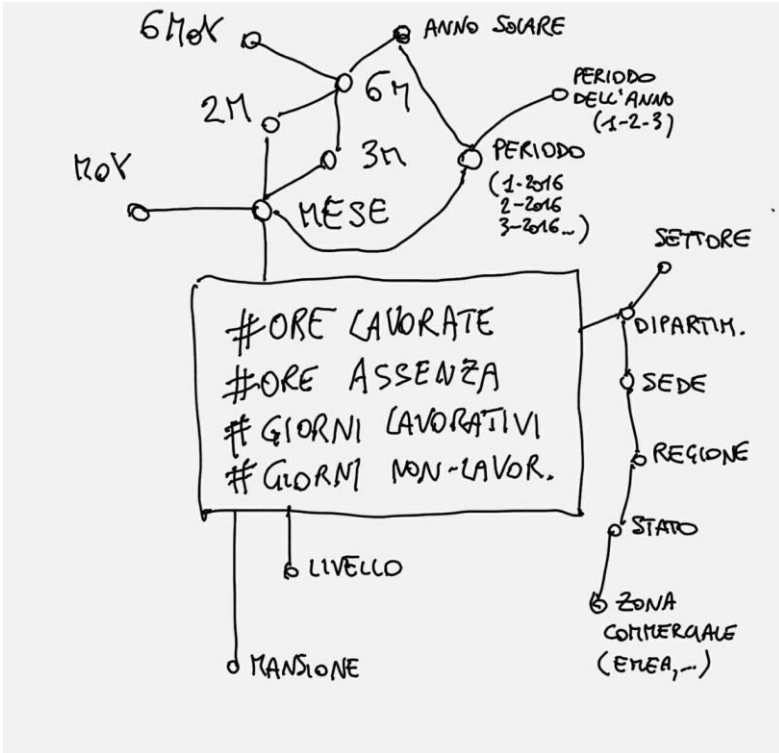 6MoY
ANNO SOLARE
6M
PERIODO
DELL'ANNO
(1-2-3)
2M
3M
PERIODO
(1-2016
2-2016
3-2016...)
MoY
MESE
SETTORE
#ORE LAVORATE
#ORE ASSENZA
# GIORNI LAVORATIVI
# GIORNI NON-LAVOR.
DIPARTIM.
SEDE
REGIONE
STATO
LIVELLO
ZONA
COMMERCIALE
(EMEA,...)
MANSIONE